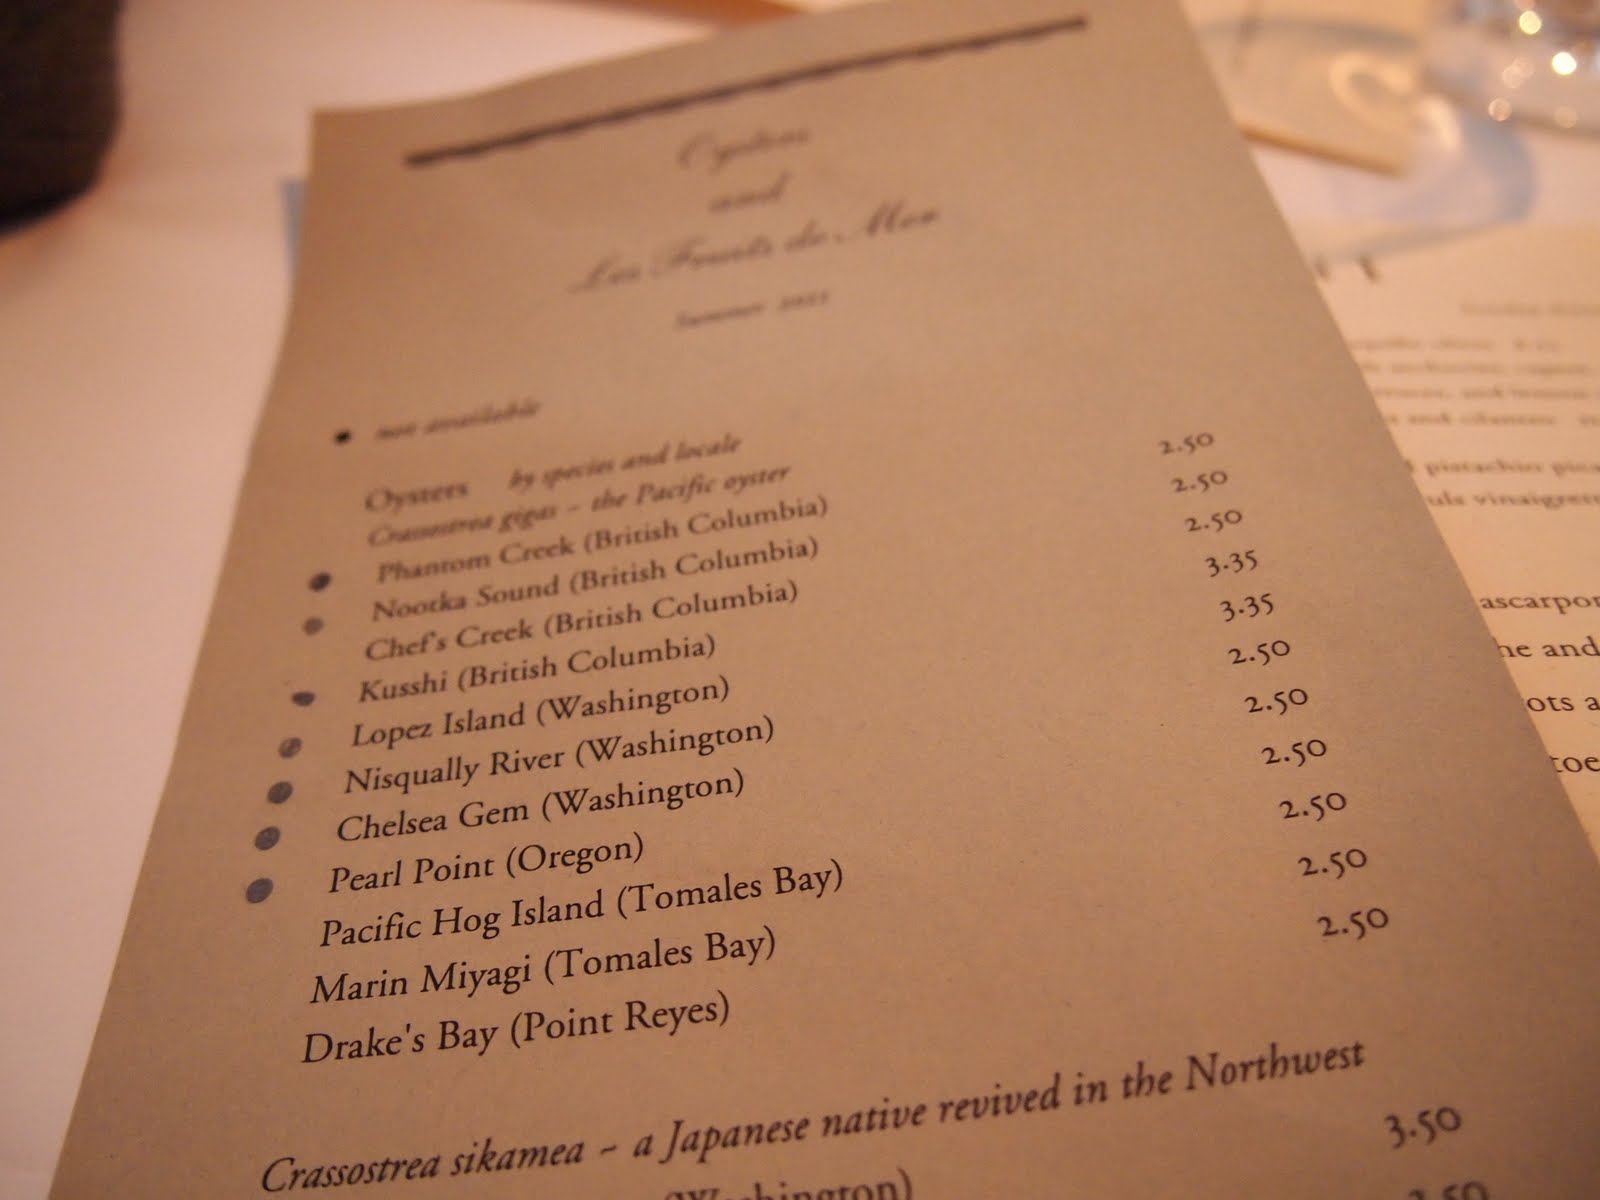 Oysters
and
Les Fruits de Mer
Summer 2011
• not available
Oysters by species and locale
Crassostrea gigas ~ the Pacific oyster
• Phantom Creek (British Columbia) 2.50
• Nootka Sound (British Columbia) 2.50
Chef's Creek (British Columbia) 2.50
• Kusshi (British Columbia) 3.35
• Lopez Island (Washington) 3.35
• Nisqually River (Washington) 2.50
• Chelsea Gem (Washington) 2.50
• Pearl Point (Oregon) 2.50
Pacific Hog Island (Tomales Bay) 2.50
Marin Miyagi (Tomales Bay) 2.50
Drake's Bay (Point Reyes) 2.50
Crassostrea sikamea ~ a Japanese native revived in the Northwest
(Washington) 3.50
and cilantro
pistachio
vinaigrette
he and
ots a
toe